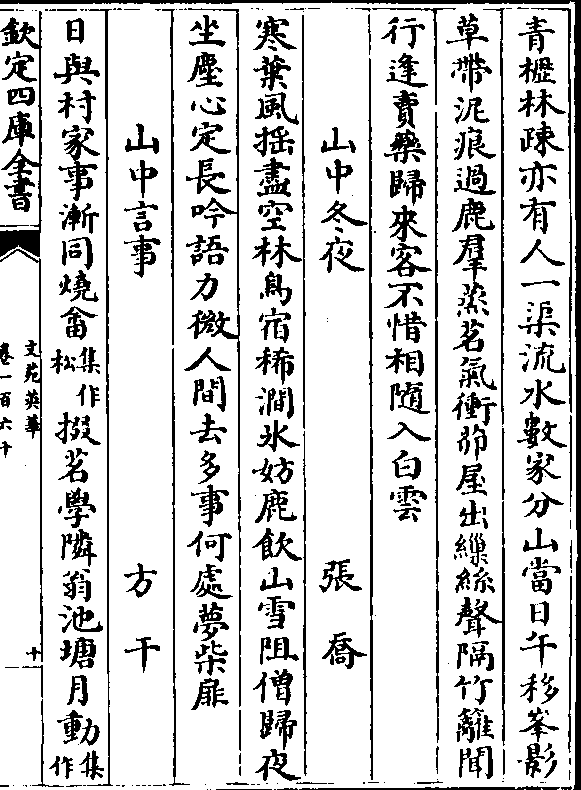 青櫪林疎亦有人一渠流水數家分山當日午移峯影
草帶泥痕過鹿羣蒸茗氣衝茆屋出繅絲聲隔竹籬聞
行逢賣藥歸來客不惜相隨入白雲
山中冬夜 張喬
寒葉風揺盡空林鳥宿稀澗氷妨鹿飲山雪阻僧歸夜
坐塵心定長吟語力微人間去多事何處夢柴扉
山中言事 方干
日與村家事漸同燒畬集作松掇茗學隣翁池塘月動集作
欽定四庫全書
文苑英華
卷一百六十
十